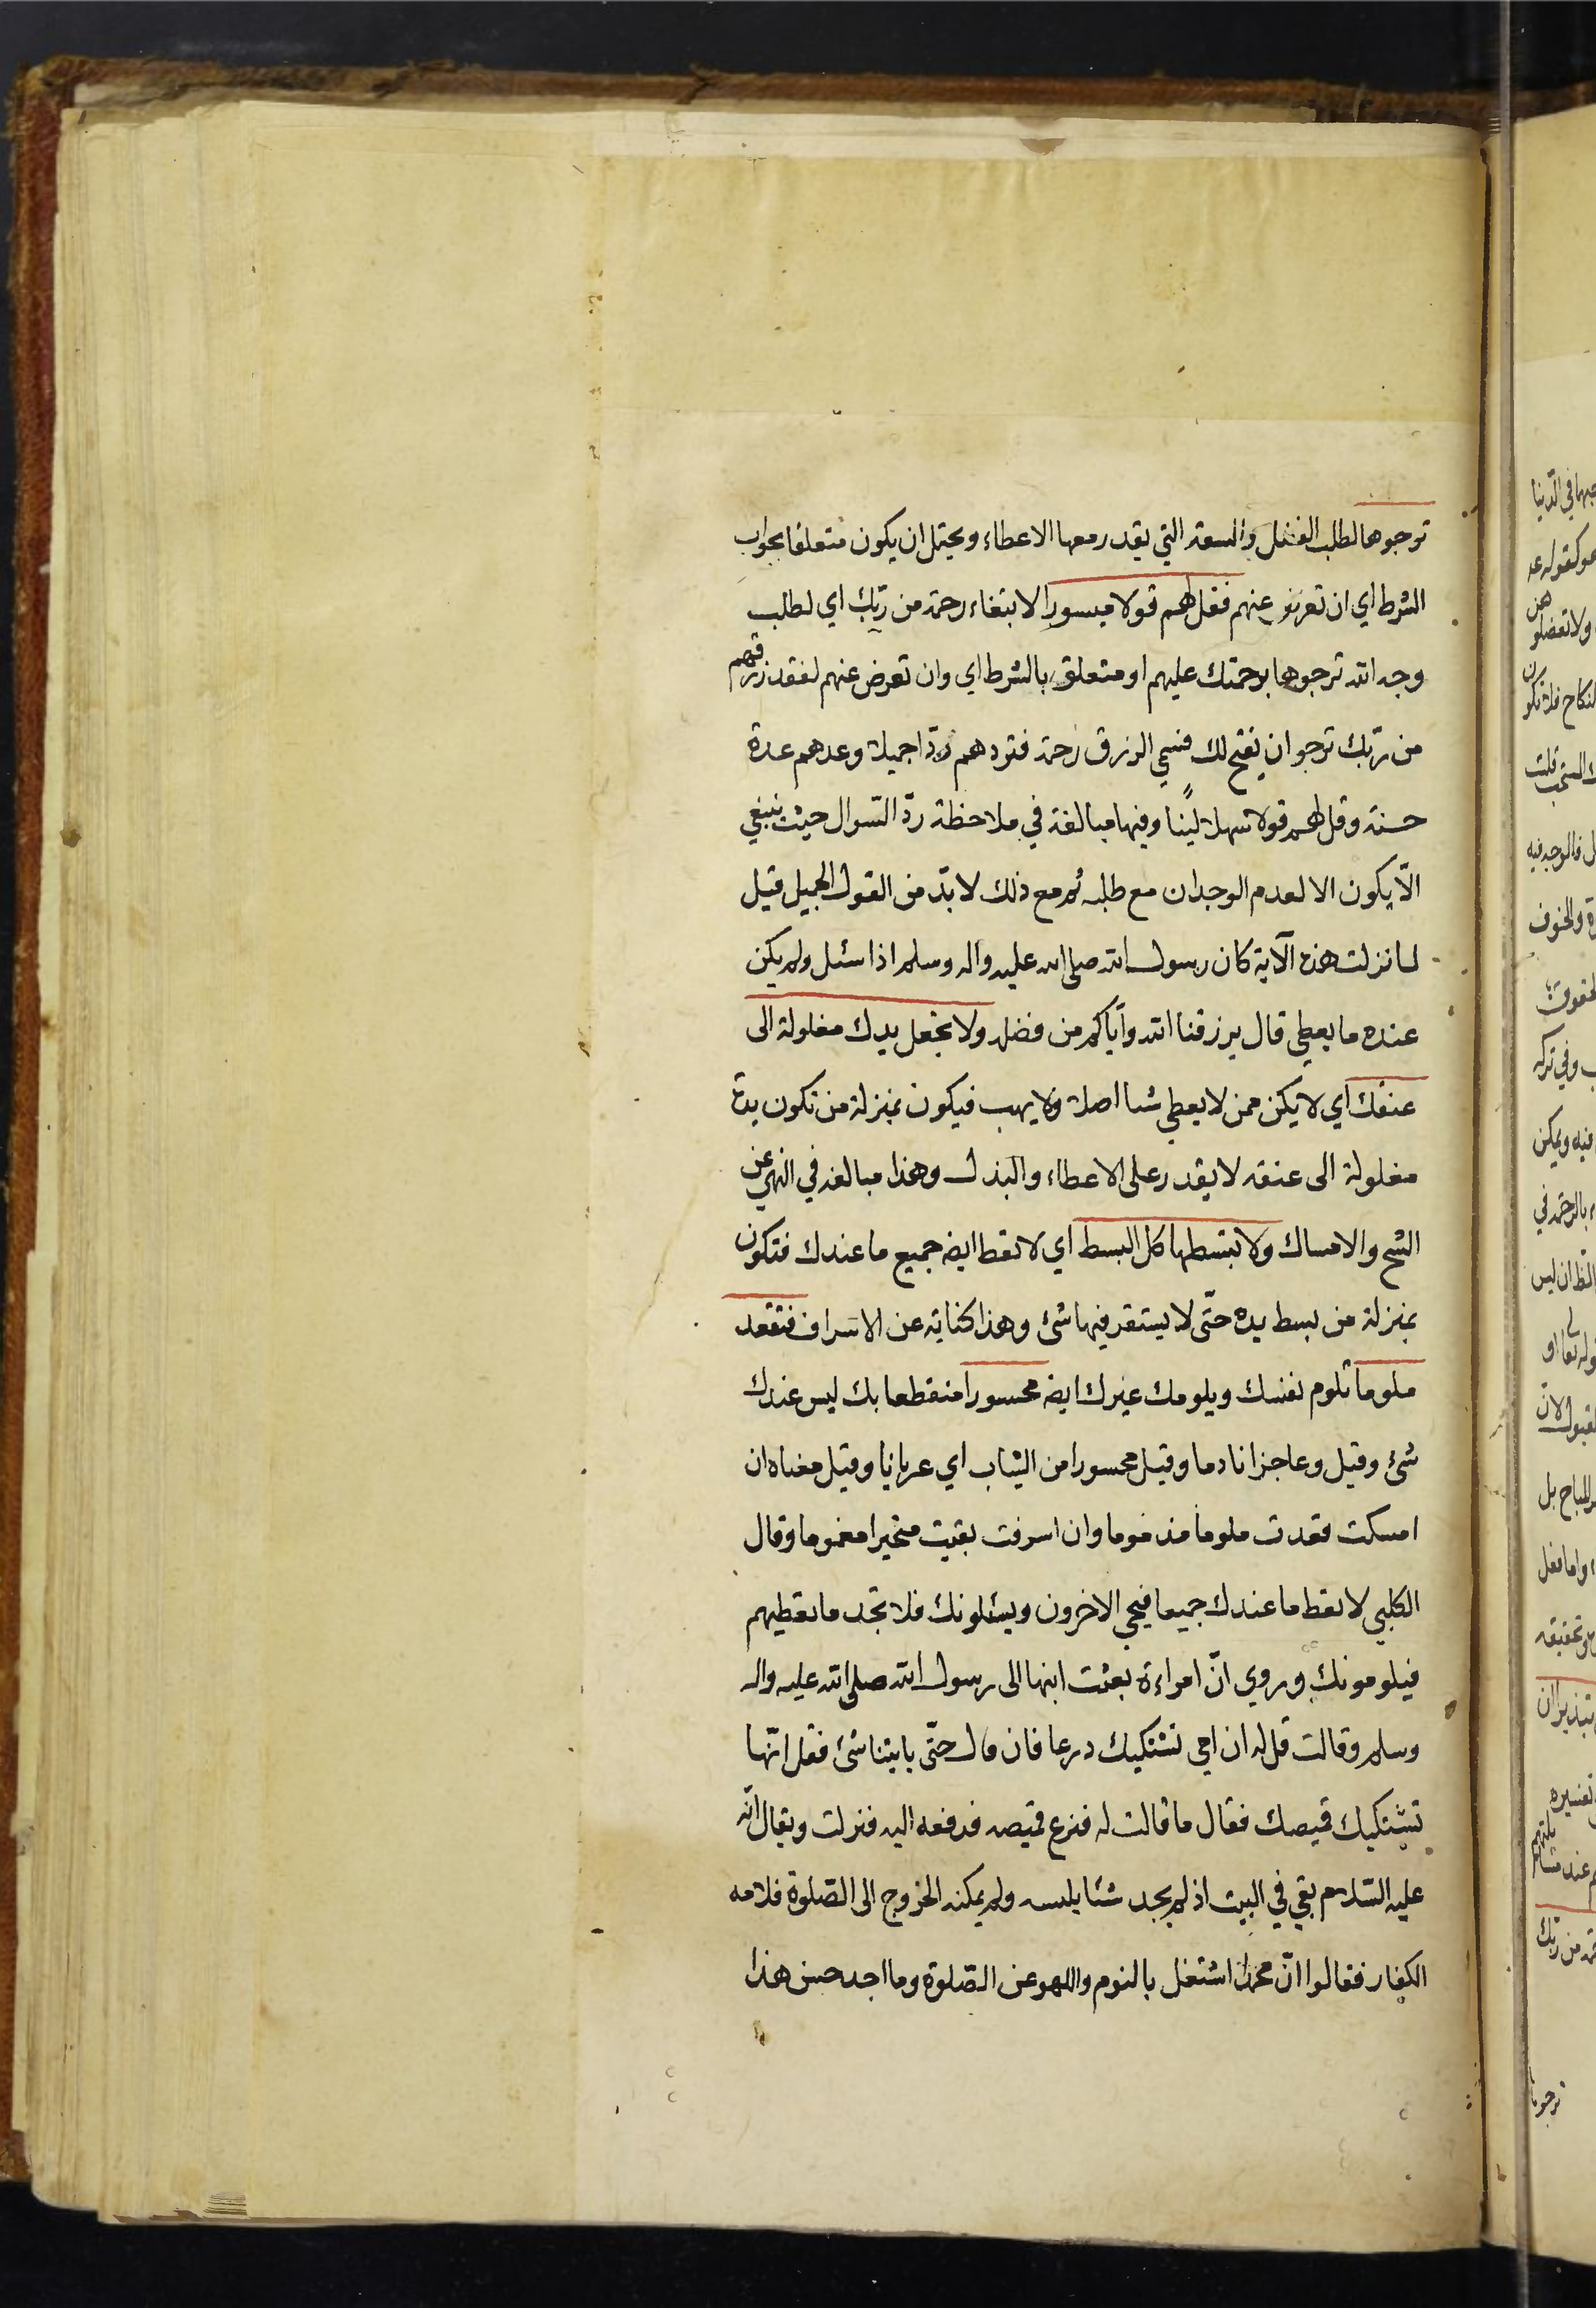 ترجوها لطلب الفضل والسعة التي يقدر معها الاعطاء ويحتمل ان يكون متعلقا بجواب
الشرط اي ان تعرض عنهم فقل لهم قولا ميسورا لابتغاء رحمة من ربّك اي لطلب
وجه الله ترجوها برحمتك عليهم او متعلق بالشرط اي وان تعرض عنهم لفقد رزقهم
من ربّك ترجو ان يفتح لك فسمي الرزق رحمة فتردهم ردّا جميلا وعدهم عدة
حسنة وقل لهم قولا سهلا ليّنا وفيها مبالغة في ملاحظة ردّ السّوال حيث ينبغي
الّا يكون الا لعدم الوجدان مع طلبه ثم مع ذلك لا بدّ من القول الجميل قيل
لما نزلت هذه الآية كان رسول الله صلى الله عليه واله وسلم اذا سئل ولم يكن
عنده ما يعطي قال يرزقنا الله وايّاكم من فضله ولا تجعل يدك مغلولة الى
عنقك اي لا يكن ممن لا يعطي شيا اصلا ولا يهب فيكون بمنزلة من تكون يده
مغلولة الى عنقه لا يقدر على الاعطاء والبذل وهذا مبالغة في النهي عن
الشح والامساك ولا تبسطها كل البسط اي لا تعط ايضه جميع ما عندك فتكون
بمنزلة من بسط يده حتّى لا يستقر فيها شئ وهذا كناية عن الاسراف فتقعد
ملوما تلوم نفسك ويلومك غيرك ايضه محسورا منقطعا بك ليس عندك
شئ وقيل وعاجزا نادما وقيل محسورا من الثياب اي عريانا وقيل معناه ان
امسكت قعدت ملوما مذموما وان اسرفت بقيت متحيرا مغموما وقال
الكلبي لا تعط ما عندك جميعا فيجي الاخرون ويسئلونك فلا تجد ما تعطيهم
فيلومونك وروي انّ امراءة بعثت ابنها الى رسول الله صلى الله عليه واله
وسلم وقالت قل له ان امي تستكيك درعا فان قال حتّى ياتينا شئ فقل انّها
تستكيك قميصك فقال ما قالت له فنزع قميصه فدفعه اليه فنزلت ويقال انّه
عليه السّلام بقي في البيت اذ لم يجد شئا يلبسه ولم يمكنه الخروج الى الصّلوة فلامه
الكفار فقالوا انّ محمدا اشتغل بالنوم واللهو عن الصّلوة وما اجد حسن هذا